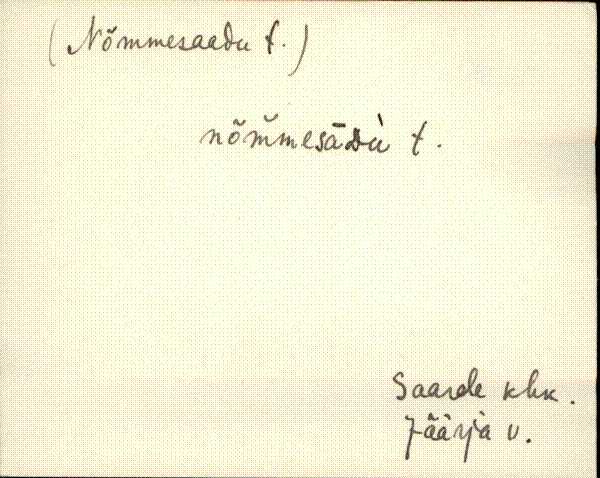 (Nõmmesaadu t.)
nõm̆mesāDù t.
Saarde khk.
Jäärja v.